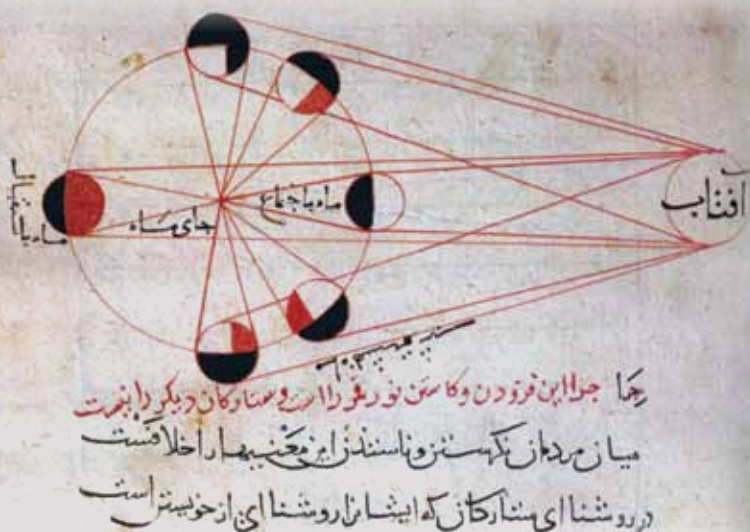 افتاب
ماه باجتماع
جای مَاه
ماه باستقبال
چرا این فزودن وکاستن نور قمر را است وستارکان دیکر را نیست
میان مردمان نکرستن وناستدن این معنیها را خلافست
در روشناای ستارکان که ایشانرا روشناای از خویشتن است